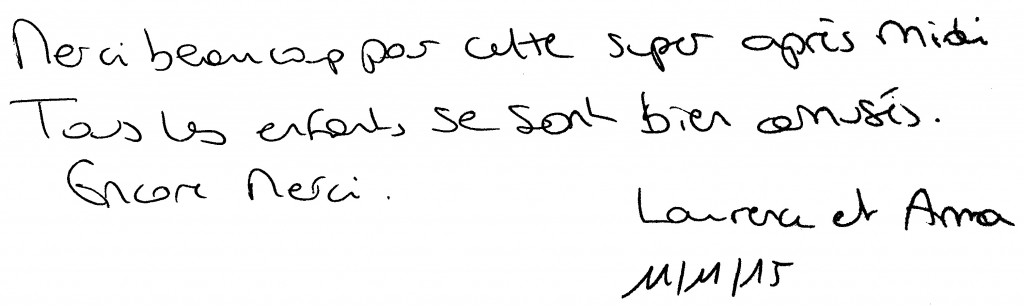 Merci beaucoup pour cette super après midi
Tous les enfants se sont bien amusés.
Encore Merci.
Laurence et Anna
11/11/15